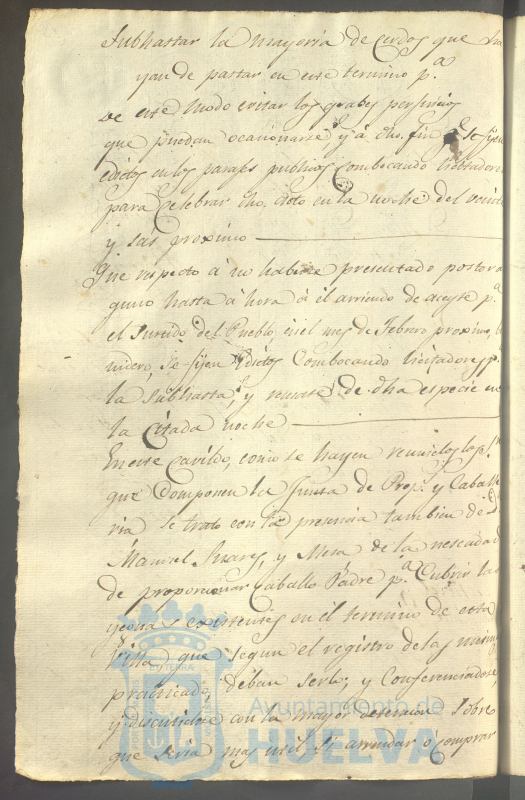 Subhastar la mayoria de Cerdos que ha
yan de pastar en este termino p.ª
de este modo evitar los grabes perjuicios
que puedan ocacionarse y á dho. fin se fijen
edictos en los parajes publicos Combocando licitadores
para Celebrar dho. acto en la noche del veinte
y seis proximo
Que respecto á no haberse presentado postor a
guno hasta á hora á el arriendo de aceyte p.ª
el Surtido del Pueblo, en el mes de Febrero proximo,
nidero, se fijen edictos Combocando licitadores p.ª
la Subhasta, y remate de dha especie en
la Citada noche
En este Cavildo, como se hayen reunidos los
que Componen la Junta de Prop.s y Caballe
ria se trato con la presencia tambien de D.
Manuel Suares, y Mesa de la nescecidad
de proporcionar Caballo Padre p.ª Cubrir las
yeguas existentes en el termino de esta
Villa que segun el registro de las mismas
practicado, deban serlo; y Conferenciadose,
y discutidose con la mayor detencion Sobre
que seria mas util si arrendar o comprar
Ayuntamiento de
HUELVA